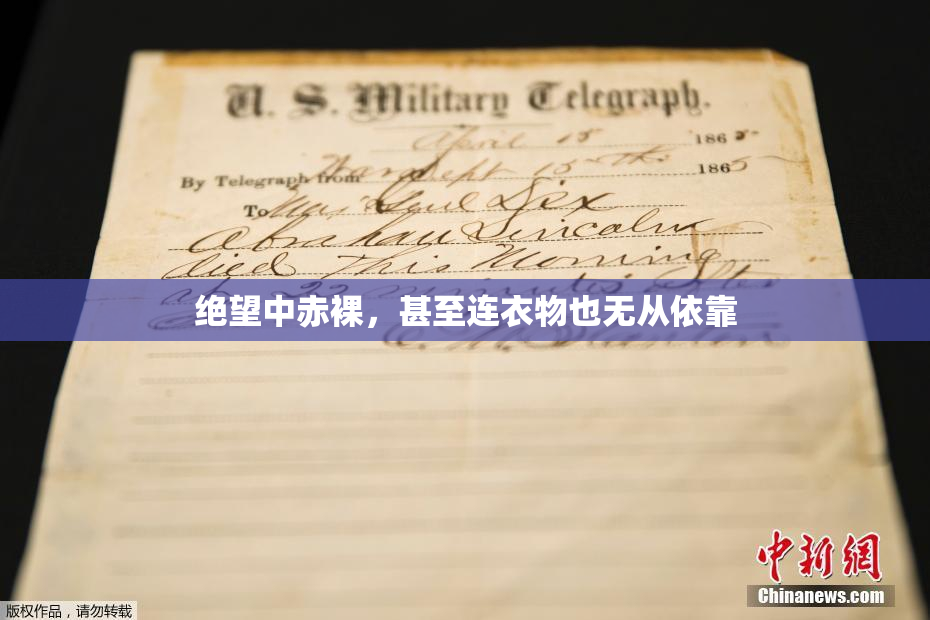 U. S. Military Telegraph.
April 15 1865
By Telegraph from War Dept 15th 1865
To Maj Genl Dix
Abraham Lincoln
died This Morning
at 22 minutes after
绝望中赤裸，甚至连衣物也无从依靠
E. M. Stanton
中新网
Chinanews.com
版权作品，请勿转载